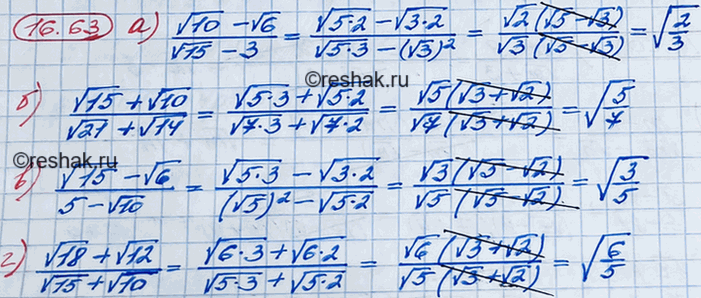 16.63 а) (√10 - √6)/(√15 - 3) = (√(5·2) - √(3·2))/(√(5·3) - (√3)²) = (√2(√5 - √3))/(√3(√5 - √3)) = √(2/3)
©reshak.ru
б) (√15 + √10)/(√21 + √14) = (√(5·3) + √(5·2))/(√(7·3) + √(7·2)) = (√5(√3 + √2))/(√7(√3 + √2)) = √(5/7)
©reshak.ru
в) (√15 - √6)/(5 - √10) = (√(5·3) - √(3·2))/((√5)² - √(5·2)) = (√3(√5 - √2))/(√5(√5 - √2)) = √(3/5)
г) (√18 + √12)/(√15 + √10) = (√(6·3) + √(6·2))/(√(5·3) + √(5·2)) = (√6(√3 + √2))/(√5(√3 + √2)) = √(6/5)